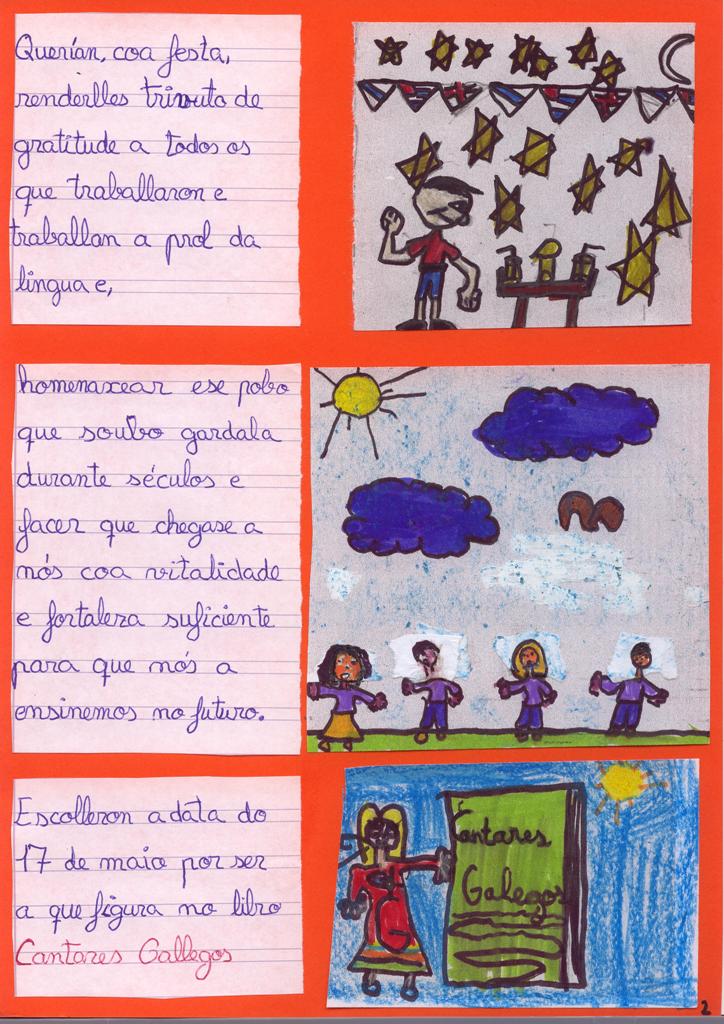 Querían, coa festa,
renderlles trivuto de
gratitude a todos os
que traballaron e
traballan a prol da
lingua e,
homenaxear ese pobo
que soubo gardala
durante séculos e
facer que chegase a
nós coa vitalidade
e fortaleza suficiente
para que nós a
ensinemos no futuro.
Escolleron a data do
17 de maio por ser
a que figura no libro
Cantares Gallegos
Cantares
Galegos
2